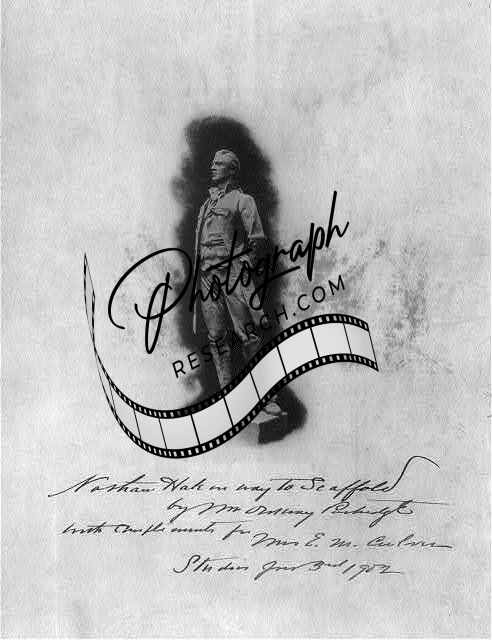 Photograph
RESEARCH.COM
Nathan Hale on way to Scaffold
by Wm Ordway Partridge
with compliments for
Mrs E. M. Culver
Studio 3rd 1902